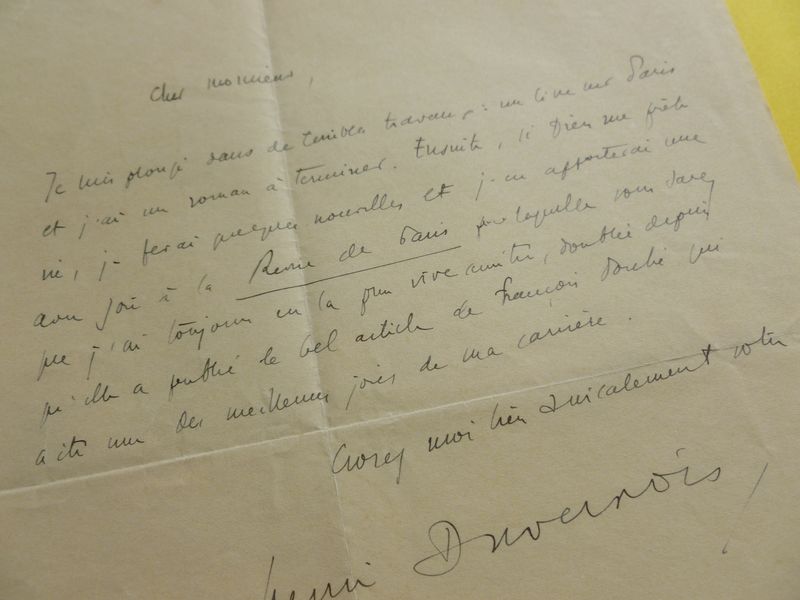 Cher monsieur,
Je suis plongé dans de terribles travaux : un livre sur Paris
et j'ai un roman à terminer. Ensuite, si Dieu me prête
vie, je ferai quelques nouvelles et j'en apporterai une
avec joie à la Revue de Paris pour laquelle vous savez
que j'ai toujours eu la plus vive amitié, doublée depuis
qu'elle a publié le bel article de François Porché qui
a été une des meilleures joies de ma carrière.
Croyez moi bien amicalement votre
Henri Duvernois